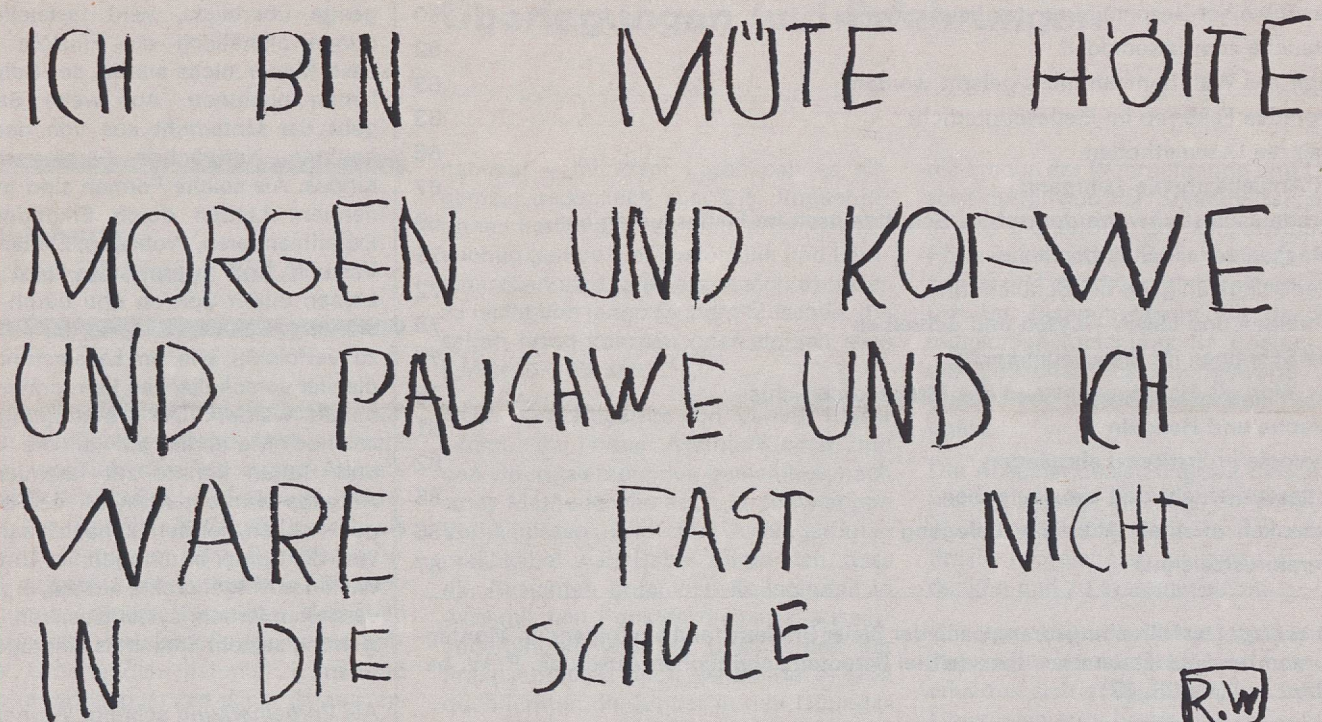 ICH BIN MÜTE HÖITE
MORGEN UND KOFWE
UND PAUCHWE UND ICH
WARE FAST NICHT
IN DIE SCHULE
R.W